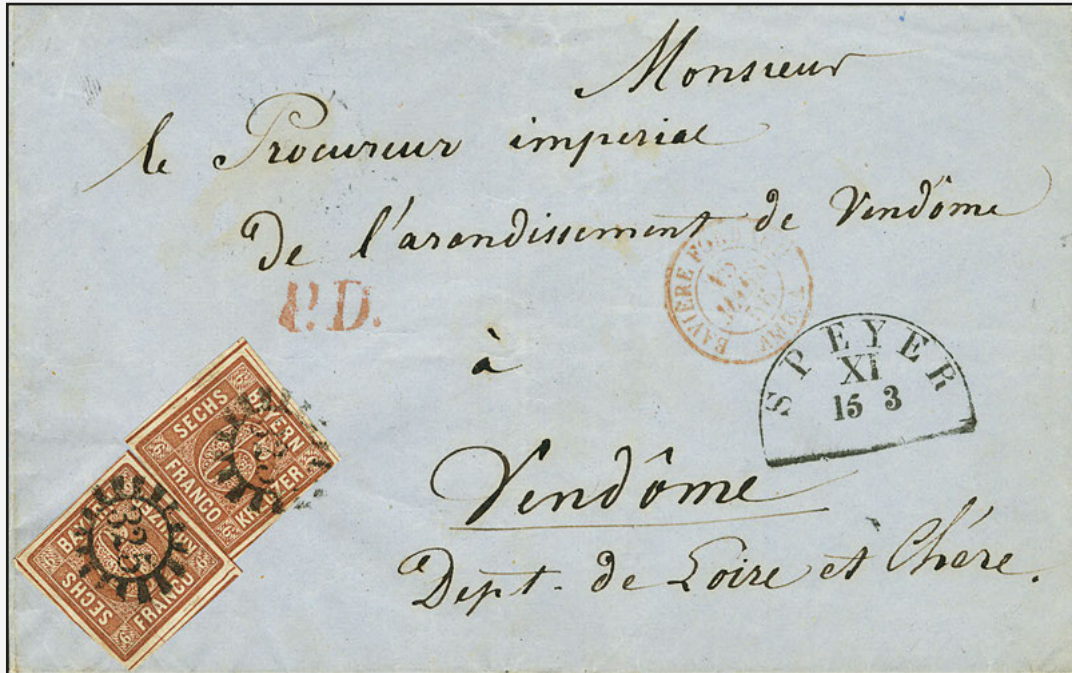 Monsieur
le Procureur imperial
De l'arandissement de Vendôme
P.D.
BAVIERE FORBACH
à
SPEYER
XI
15 3
Vendôme
Dept. de Loire et Chére.
BAYERN
SECHS
FRANCO
KREUZER
6
325
BAYERN
SECHS
FRANCO
KREUZER
6
325